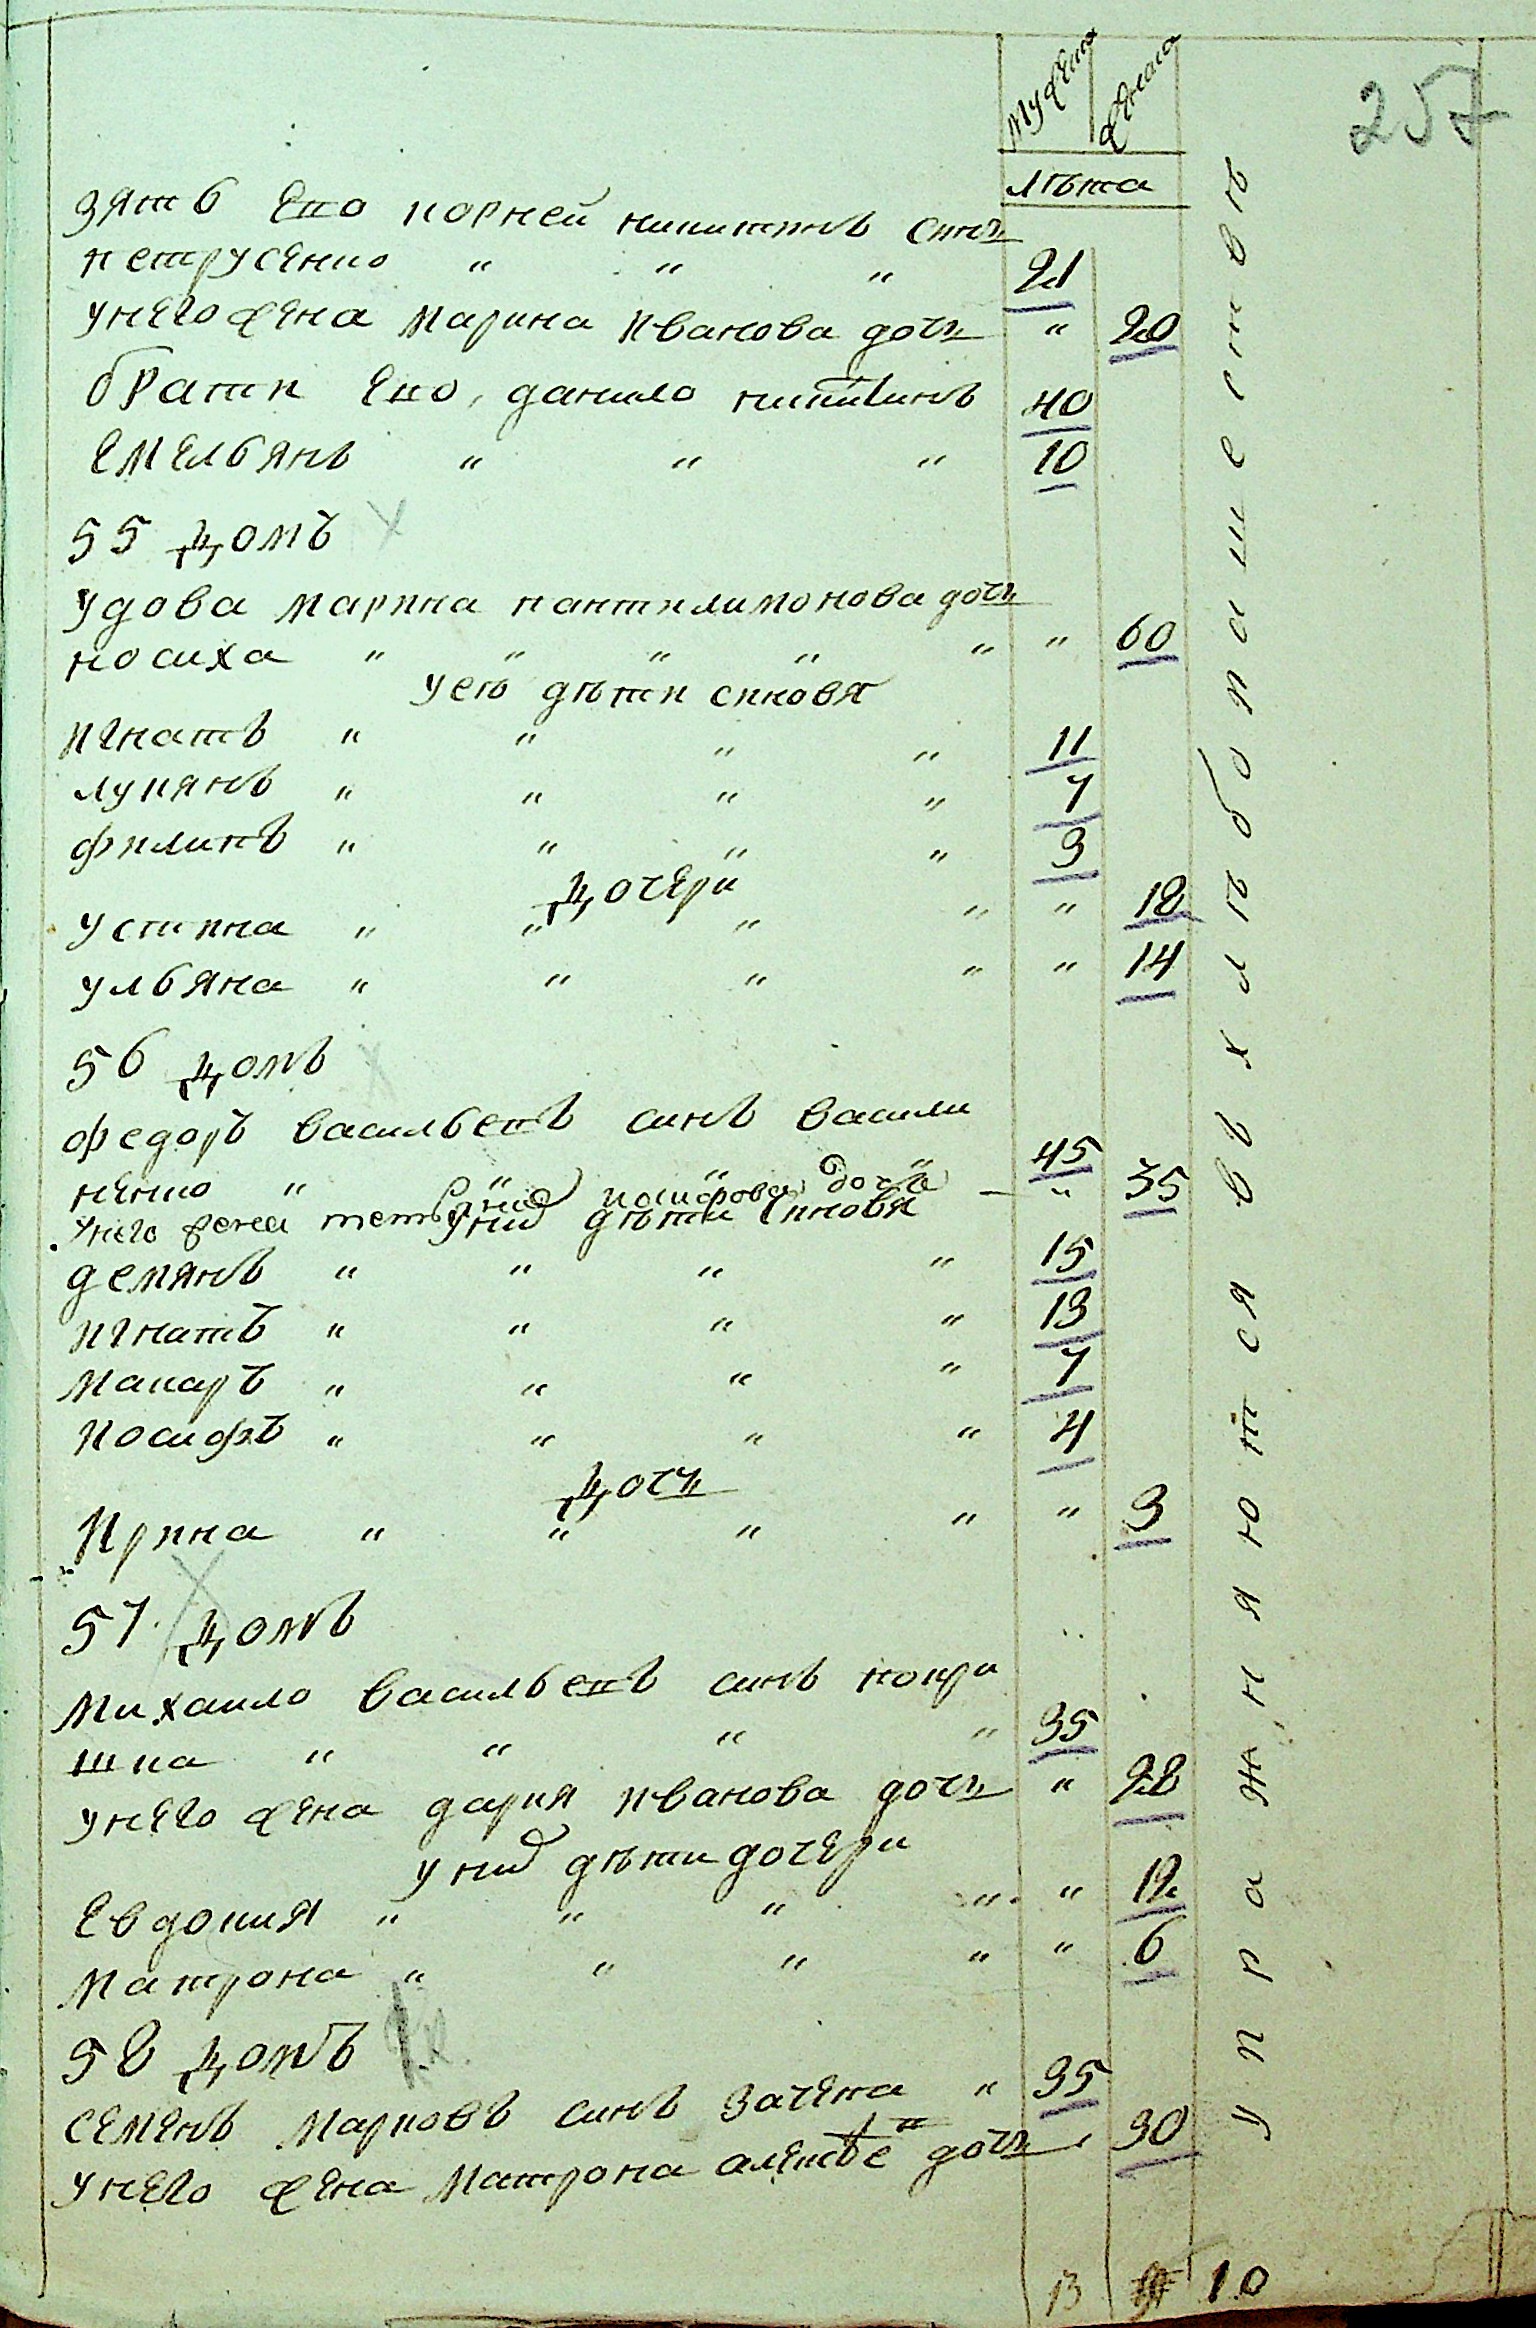 257
мужеска женска
лѣта
зять его корней никитинъ синъ
петрусенко " " " 21
унего жена марина иванова дочъ " 20
брати его, данило никитинъ 40
емельянъ " " " 10
55 домъ
удова марина пантилимонова дочъ
носиха " " " " " " 60
уеѣ дѣти синовя
игнатъ " " " " 11
лукянъ " " " " 7
филипъ " " " " 3
дочери
устинна " " " " " 18
ульяна " " " " " 14
56 домъ
федоръ васильевъ синъ васили
ненко " " " " 45
унего жена дочъ — " 35
уних дѣти синовя
демянъ " " " " 15
игнатъ " " " " 13
макаръ " " " " 7
иосифъ " " " " 4
дочъ
ирина " " " " " 3
57 домъ
михаило васильевъ синъ кокри
шка " " " " 35
унего жена дария иванова дочъ " 28
уних дѣти дочери
евдокия " " " " " 12
матрона " " " " " 6
58 домъ
семенъ марковъ синъ зачепа " 35
унего жена матрона дочъ 30
13 10
упражняются въ хлѣбопашествѣ